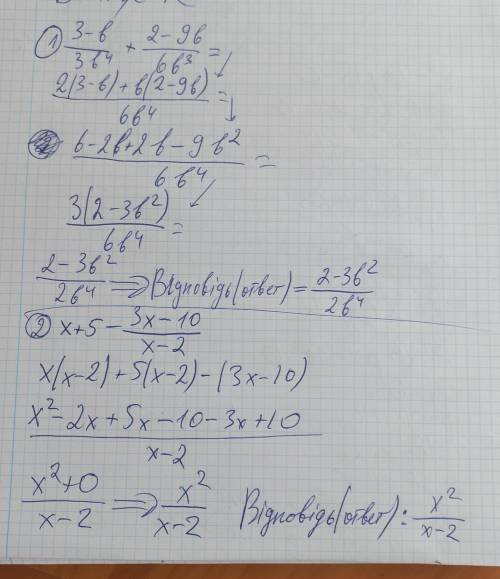 ① (3-в)/(3в⁴) + (2-9в)/(6в³) =
(2(3-в)+в(2-9в))/(6в⁴) =
(6-2в+2в-9в²)/(6в⁴) =
(3(2-3в²))/(6в⁴) =
(2-3в²)/(2в⁴) ⟹ Відповідь(ответ) = (2-3в²)/(2в⁴)
② x+5 - (3x-10)/(x-2)
x(x-2)+5(x-2)-(3x-10)
(x²-2x+5x-10-3x+10)/(x-2)
(x²+0)/(x-2) ⟹ x²/(x-2) Відповідь(ответ): x²/(x-2)